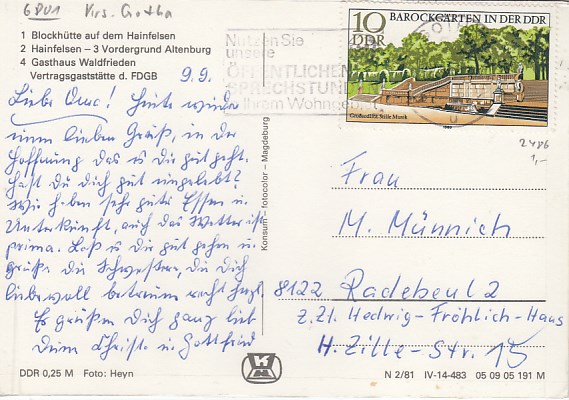 GDU1 Krs. Gotha
1 Blockhütte auf dem Hainfelsen
2 Hainfelsen – 3 Vordergrund Altenburg
4 Gasthaus Waldfrieden
Vertragsgaststätte d. FDGB
9.9.
Liebe Oma! Heute wieder
einen lieben Gruß, in der
Hoffnung das es Dir gut geht.
hast Du Dich gut eingelebt?
Wir haben sehr gutes Essen u.
Unterkunft, auch das Wetter ist
prima. Laß es Dir gut gehen u.
grüße die Schwestern, die Dich
liebevoll betreuen recht herzl.
Es grüßen Dich ganz lieb
Deine Christa u. Gottfried
DDR 0,25 M Foto: Heyn
Konsum - fotocolor – Magdeburg
Nutzen Sie
unsere
ÖFFENTLICHEN
SPRECHSTUNDEN
in Ihrem Wohngebiet
10
DDR
BAROCKGÄRTEN IN DER DDR
Großsedlitz: Stille Musik
1980
2486
1,-
Frau
M. Münnich
8122 Radebeul 2
z. Zt. Hedwig-Fröhlich-Haus
H. Zille-Str. 15
N 2/81 IV-14-483 05 09 05 191 M